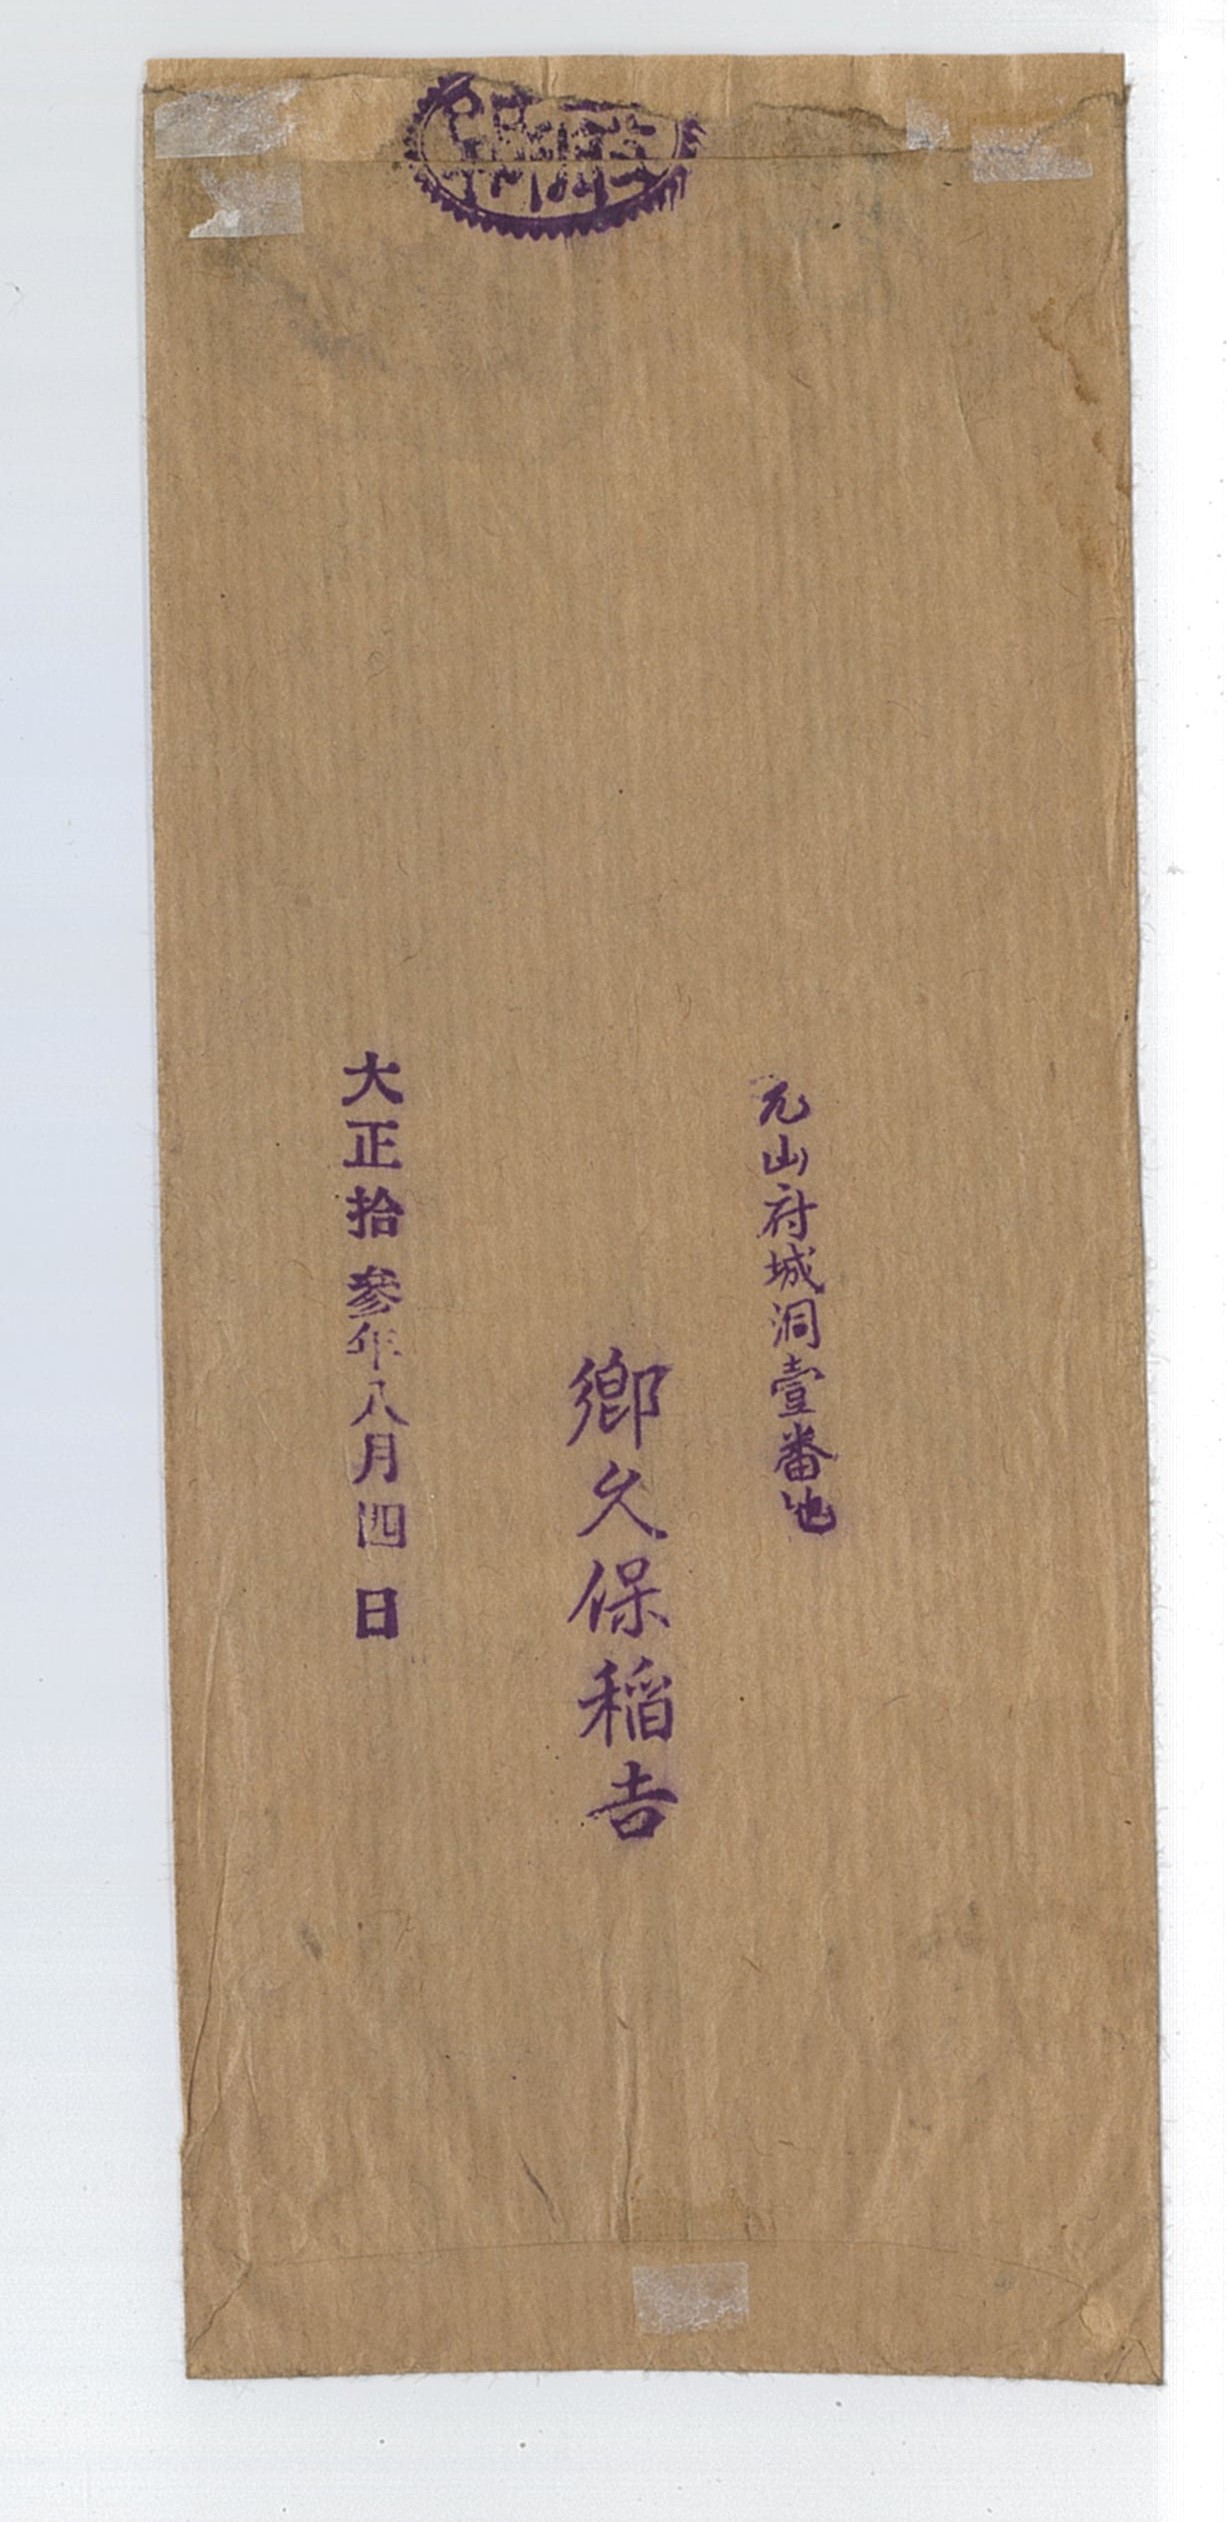 元山府城洞壹番地
鄉久保稲吉
大正拾参年八月四日